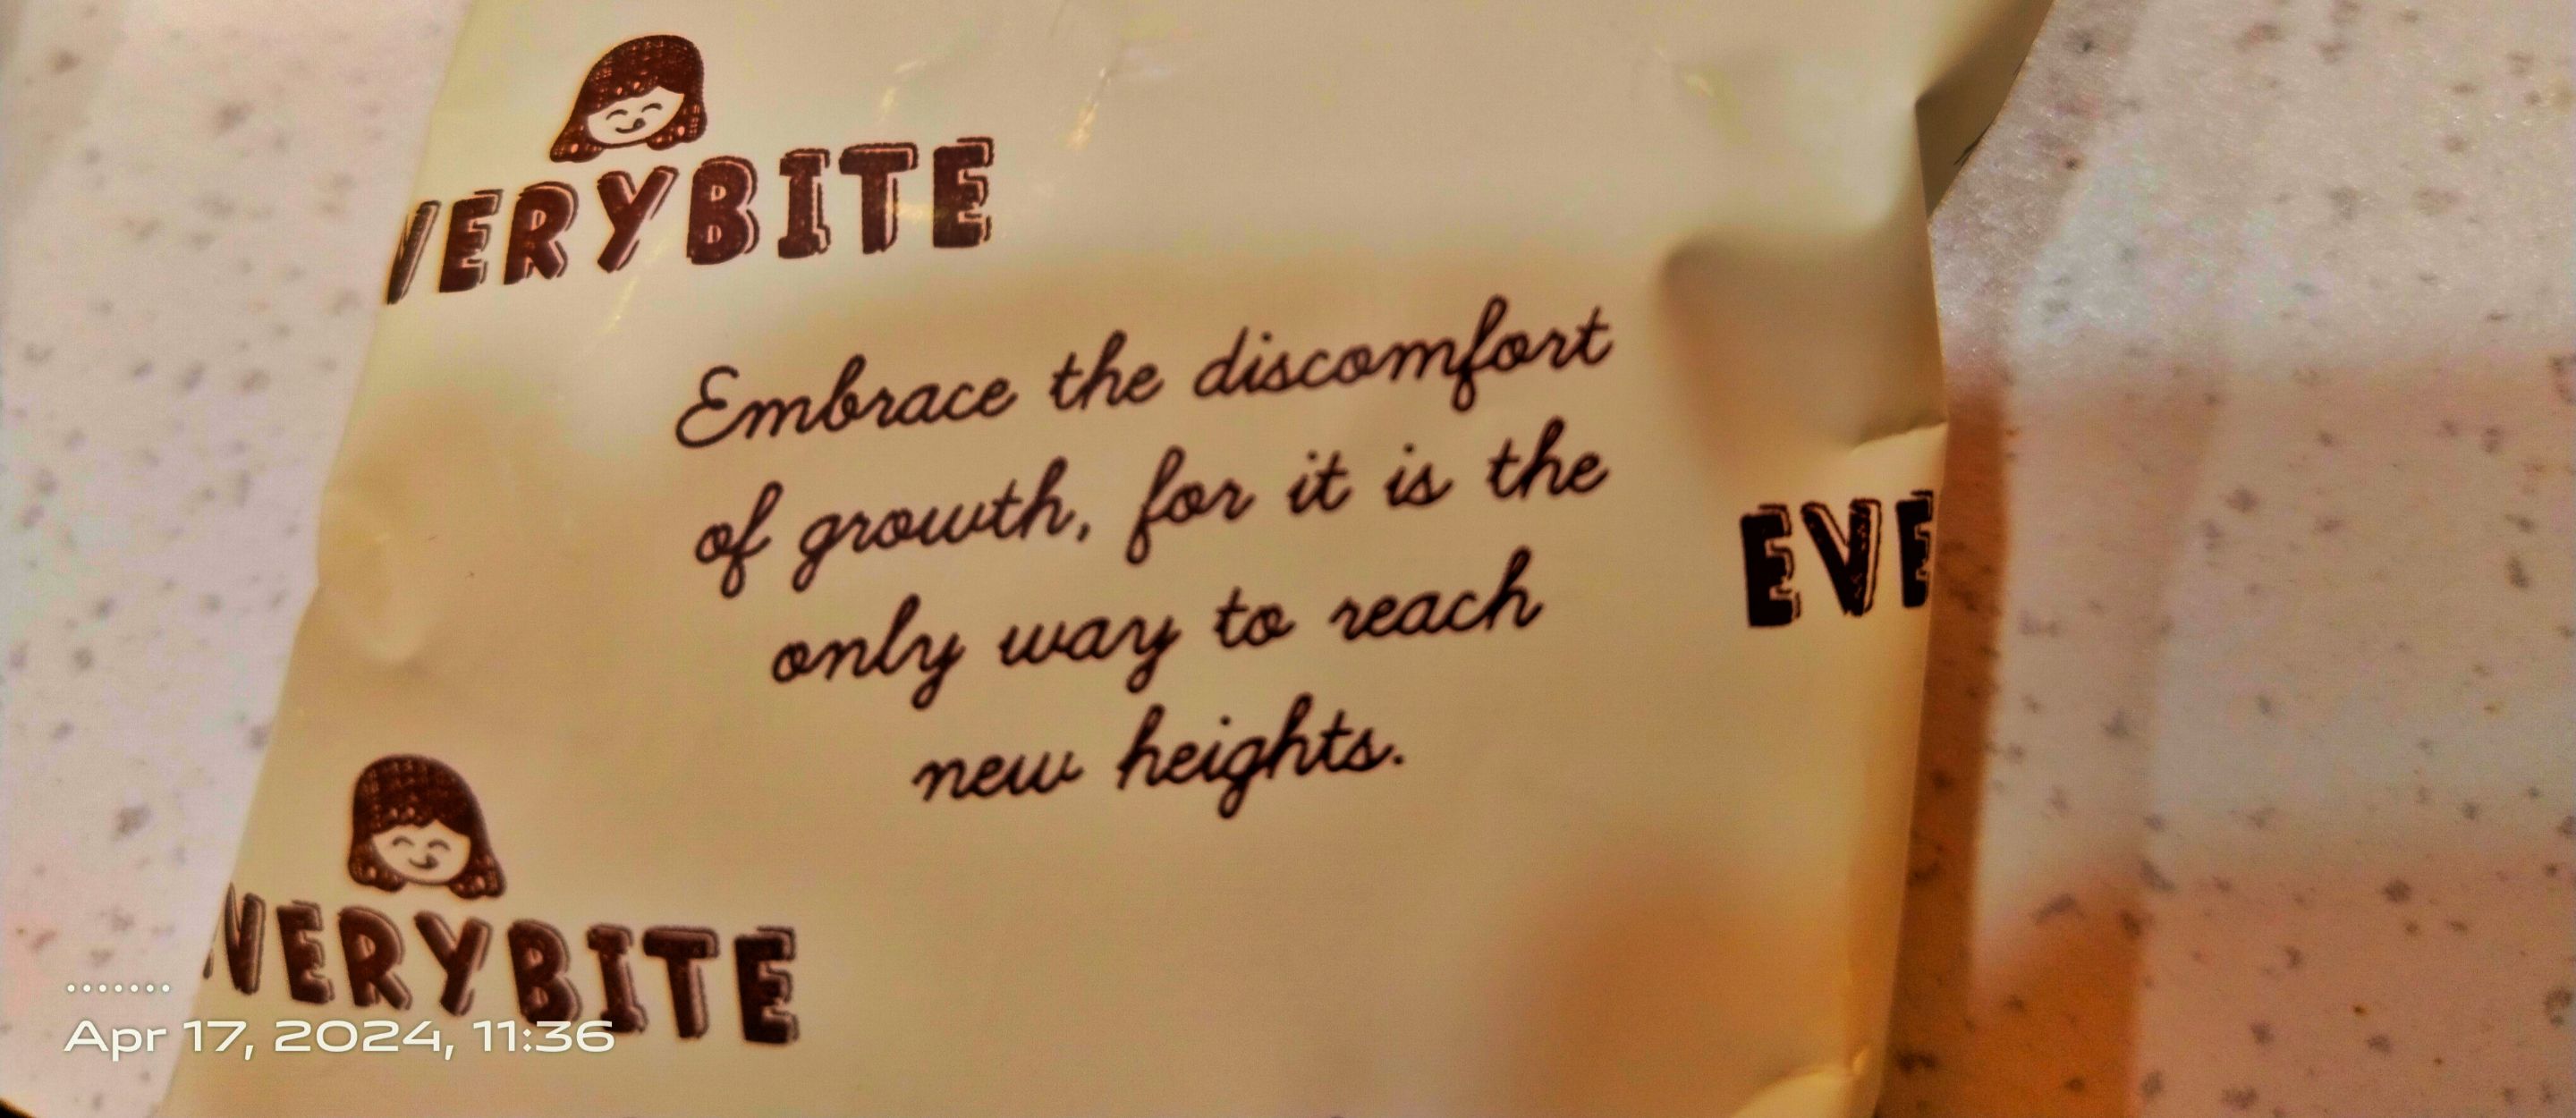 VERYBITE
Embrace the discomfort
of growth, for it is the
only way to reach
new heights.
EVE
VERYBITE
Apr 17, 2024, 11:36